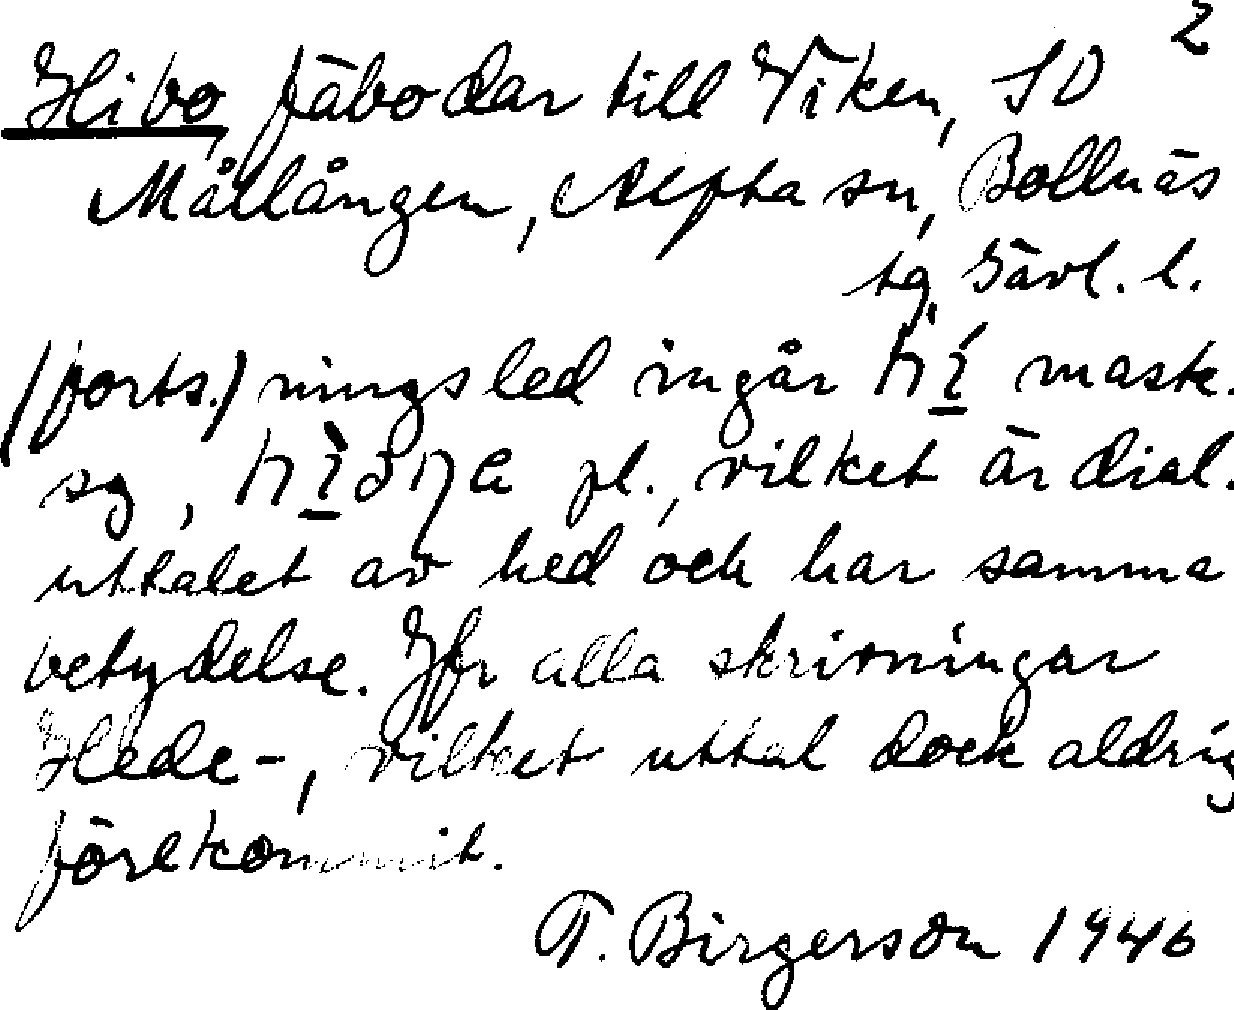 2
Hibo, fäbodar till Viken, SO
Mållången, Alfta sn, Bollnäs
tg, Gävl. l.
(forts.) ningsled ingår hí mask.
sg, pl., vilket är dial.
uttalet av hed och har samma
betydelse. Jfr alla skrivningar
Hede-, vilket uttal dock aldrig
förekommit.
T. Birgerson 1946